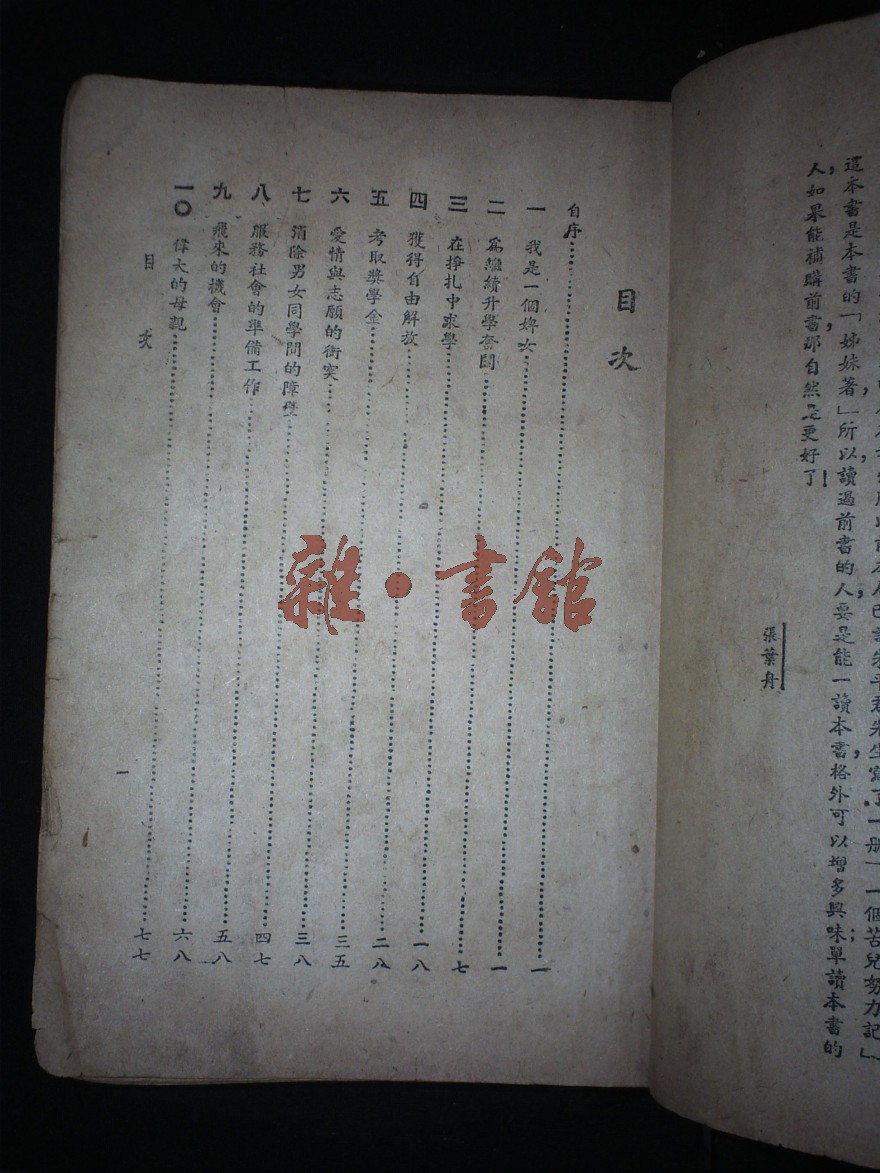 本人已請朱平君先生寫了一册「一個苦兒努力記」、
這本書是本書的「姊妹著」所以,讀過前書的人,要是能一讀本書,格外可以增多興味;單讀本書的
人,如果能補購前書,那自然是更好了!
張葉舟
目次
自序……一
一 我是一個婢女……一
二 爲繼續升學奮鬭……七
三 在掙扎中求學……一八
四 獲得自由解放……二八
五 考取獎學金……三五
六 愛情與志願的衝突……三八
七 消除男女同學間的障壁……四七
八 服務社會的準備工作……五八
九 飛來的機會……六八
一〇 偉大的母親……七七
目次
一
雜·書館